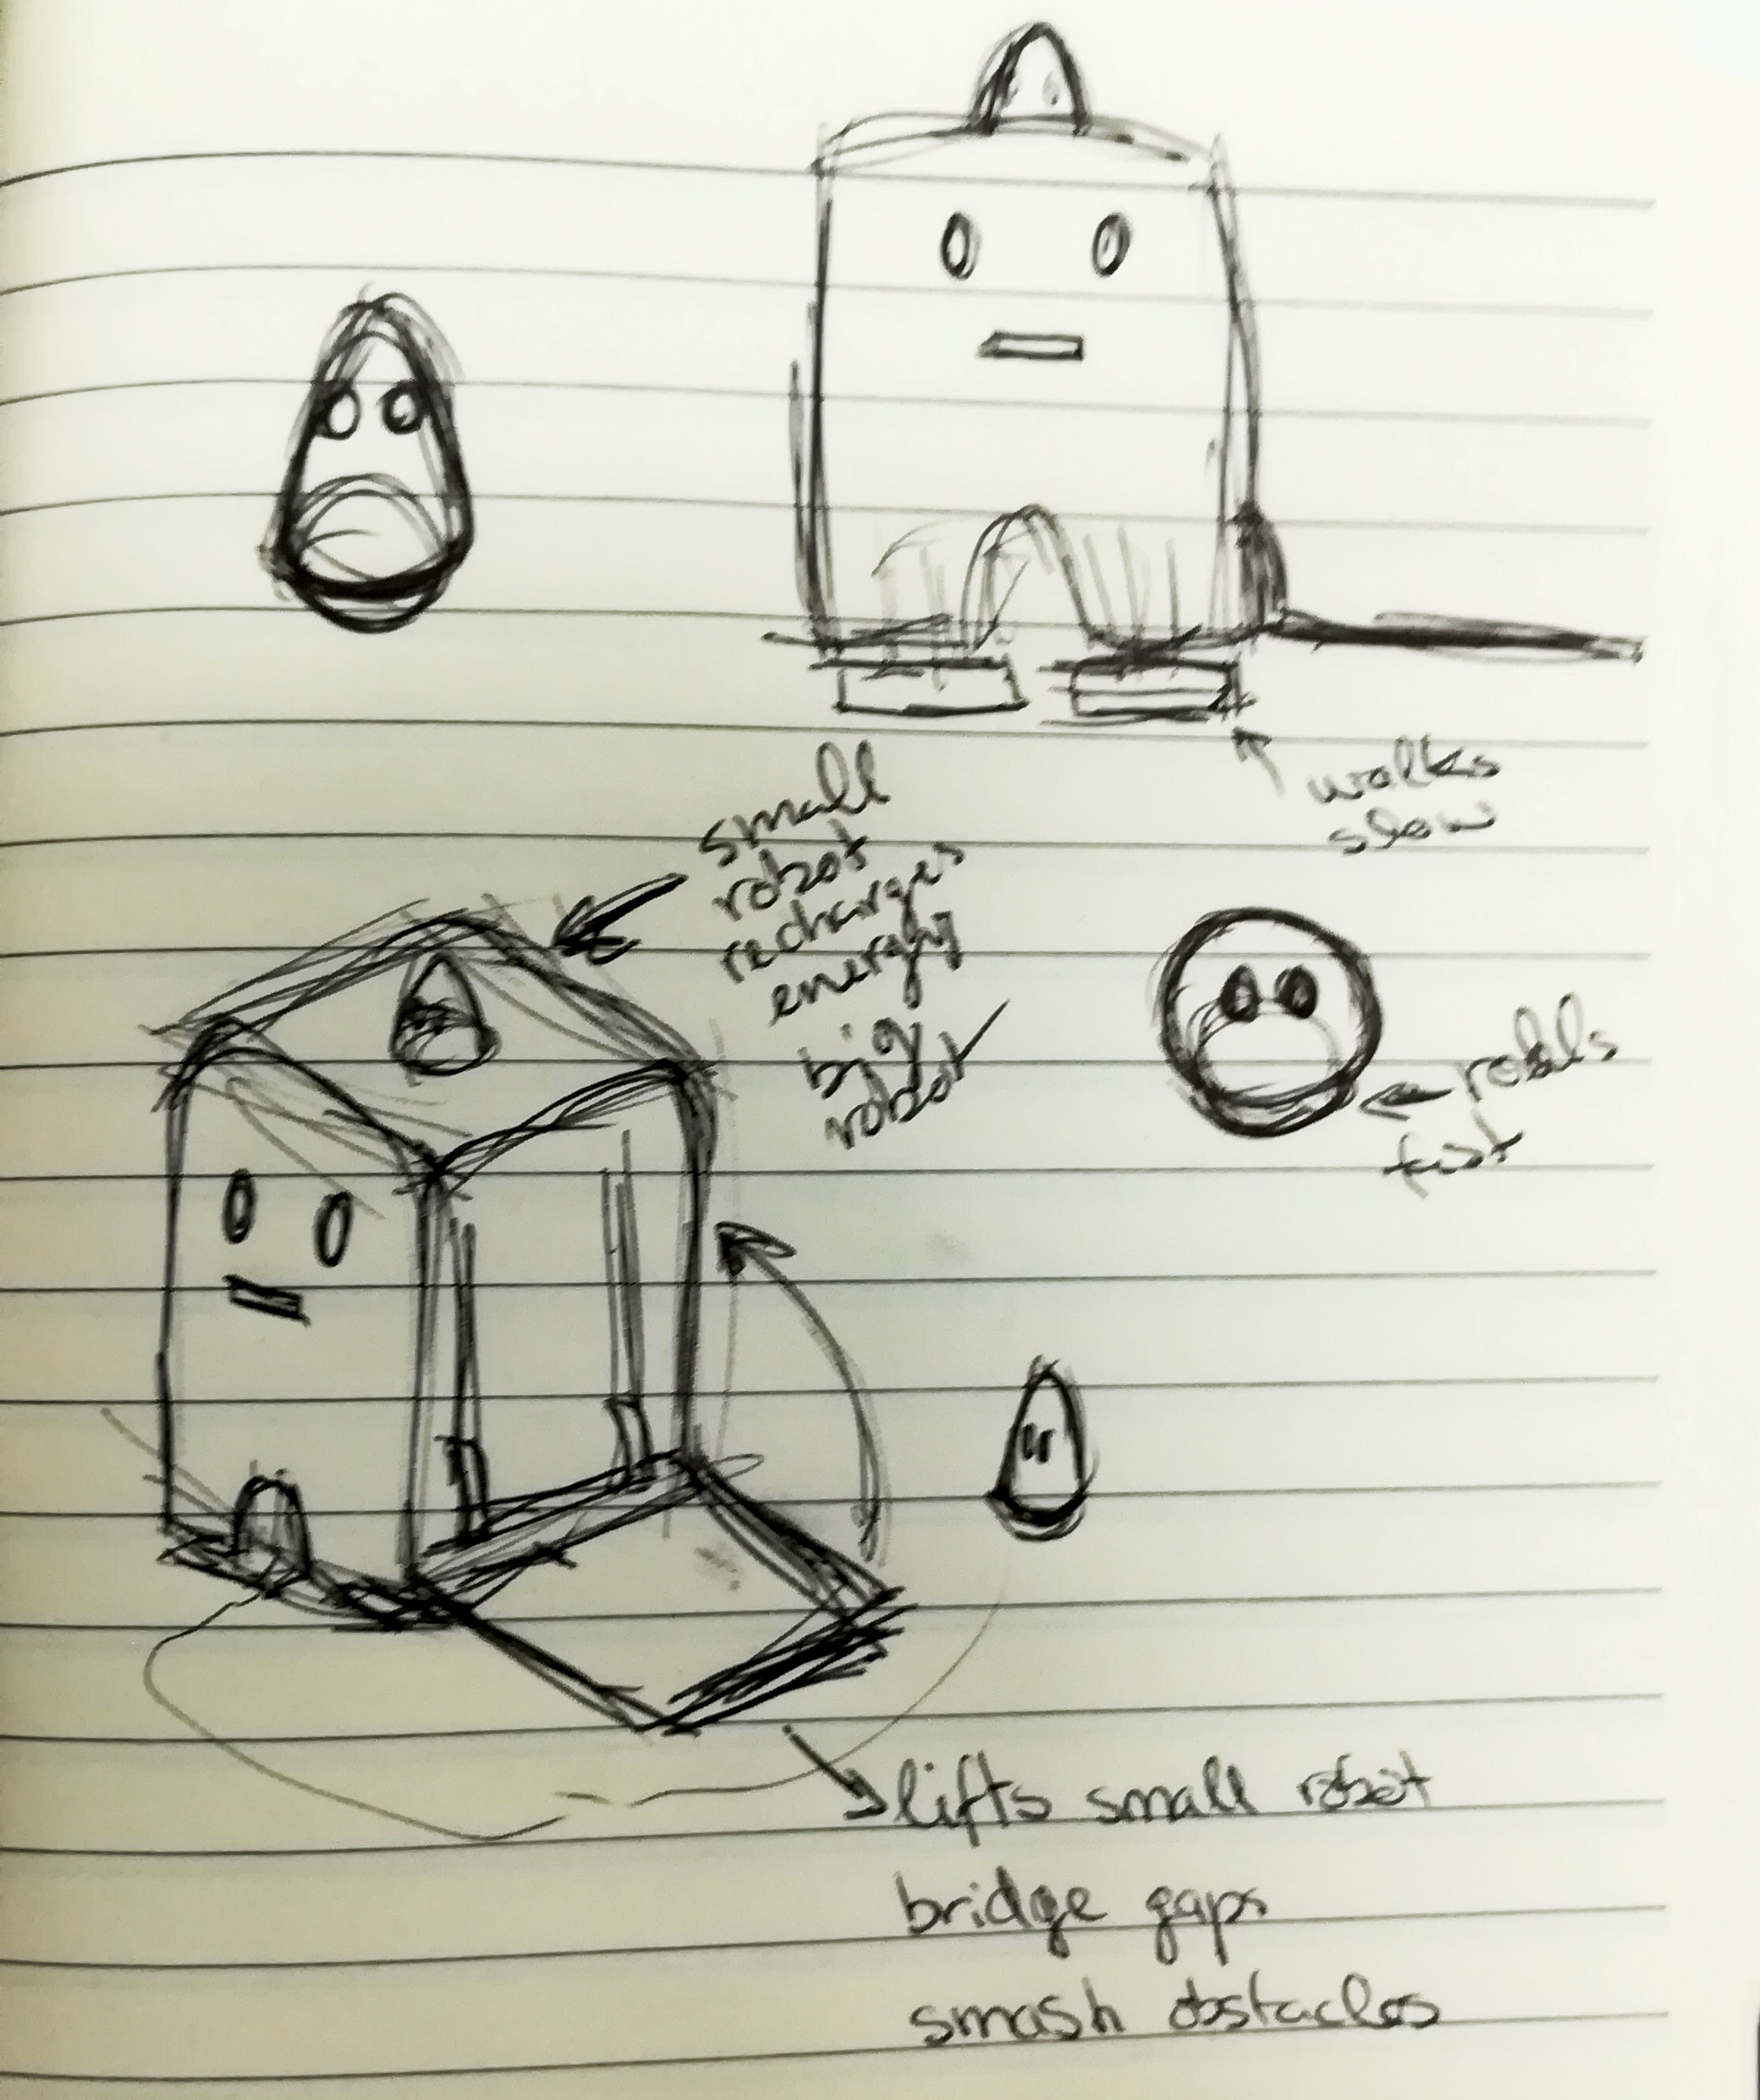 walks
slow
small
robot
recharges
energy
big
robot
fast
lifts small robot
bridge gaps
smash obstacles